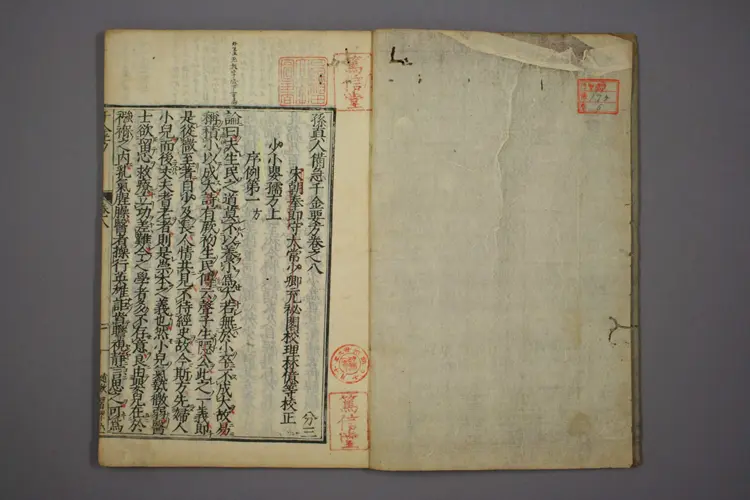 孫真人備急千金要方卷之八
宋朝奉郎守太常少卿充秘閣校理林億等校正
少小嬰孺方上
序例第一 方
論曰夫生民之道莫不以養小爲大若無於小卒不成大故易
稱積小以成大詩有厥初生民傳云聲子生隱公此之一義即
是從微至著自少及長人情共見不待經史故今斯方先婦人
小兒而後丈夫耆老者則是崇本之義也然小兒氣勢微弱醫
士欲留心救療立功差難今之學者多不存意良由嬰兒在於
襁褓之内乳氣腥臊醫者操行英雄詎肯瞻視靜言思之可爲
分三
篤信堂
篤信堂